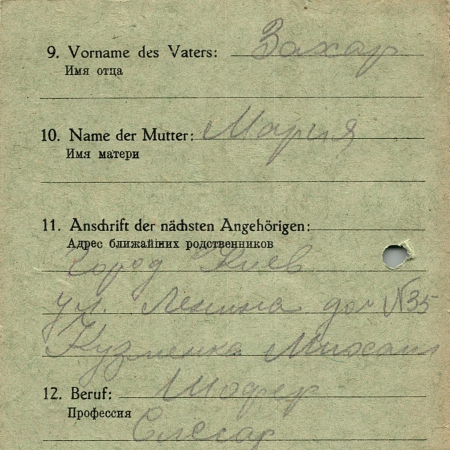 9. Vorname des Vaters: Захар
Имя отца
10. Name der Mutter: Мария
Имя матери
11. Anschrift der nächsten Angehörigen:
Адрес ближайших родственников
Город Киев
ул. Ленина дом №35
Кузменка Михаил
12. Beruf: Шофер
Профессия
Слесар